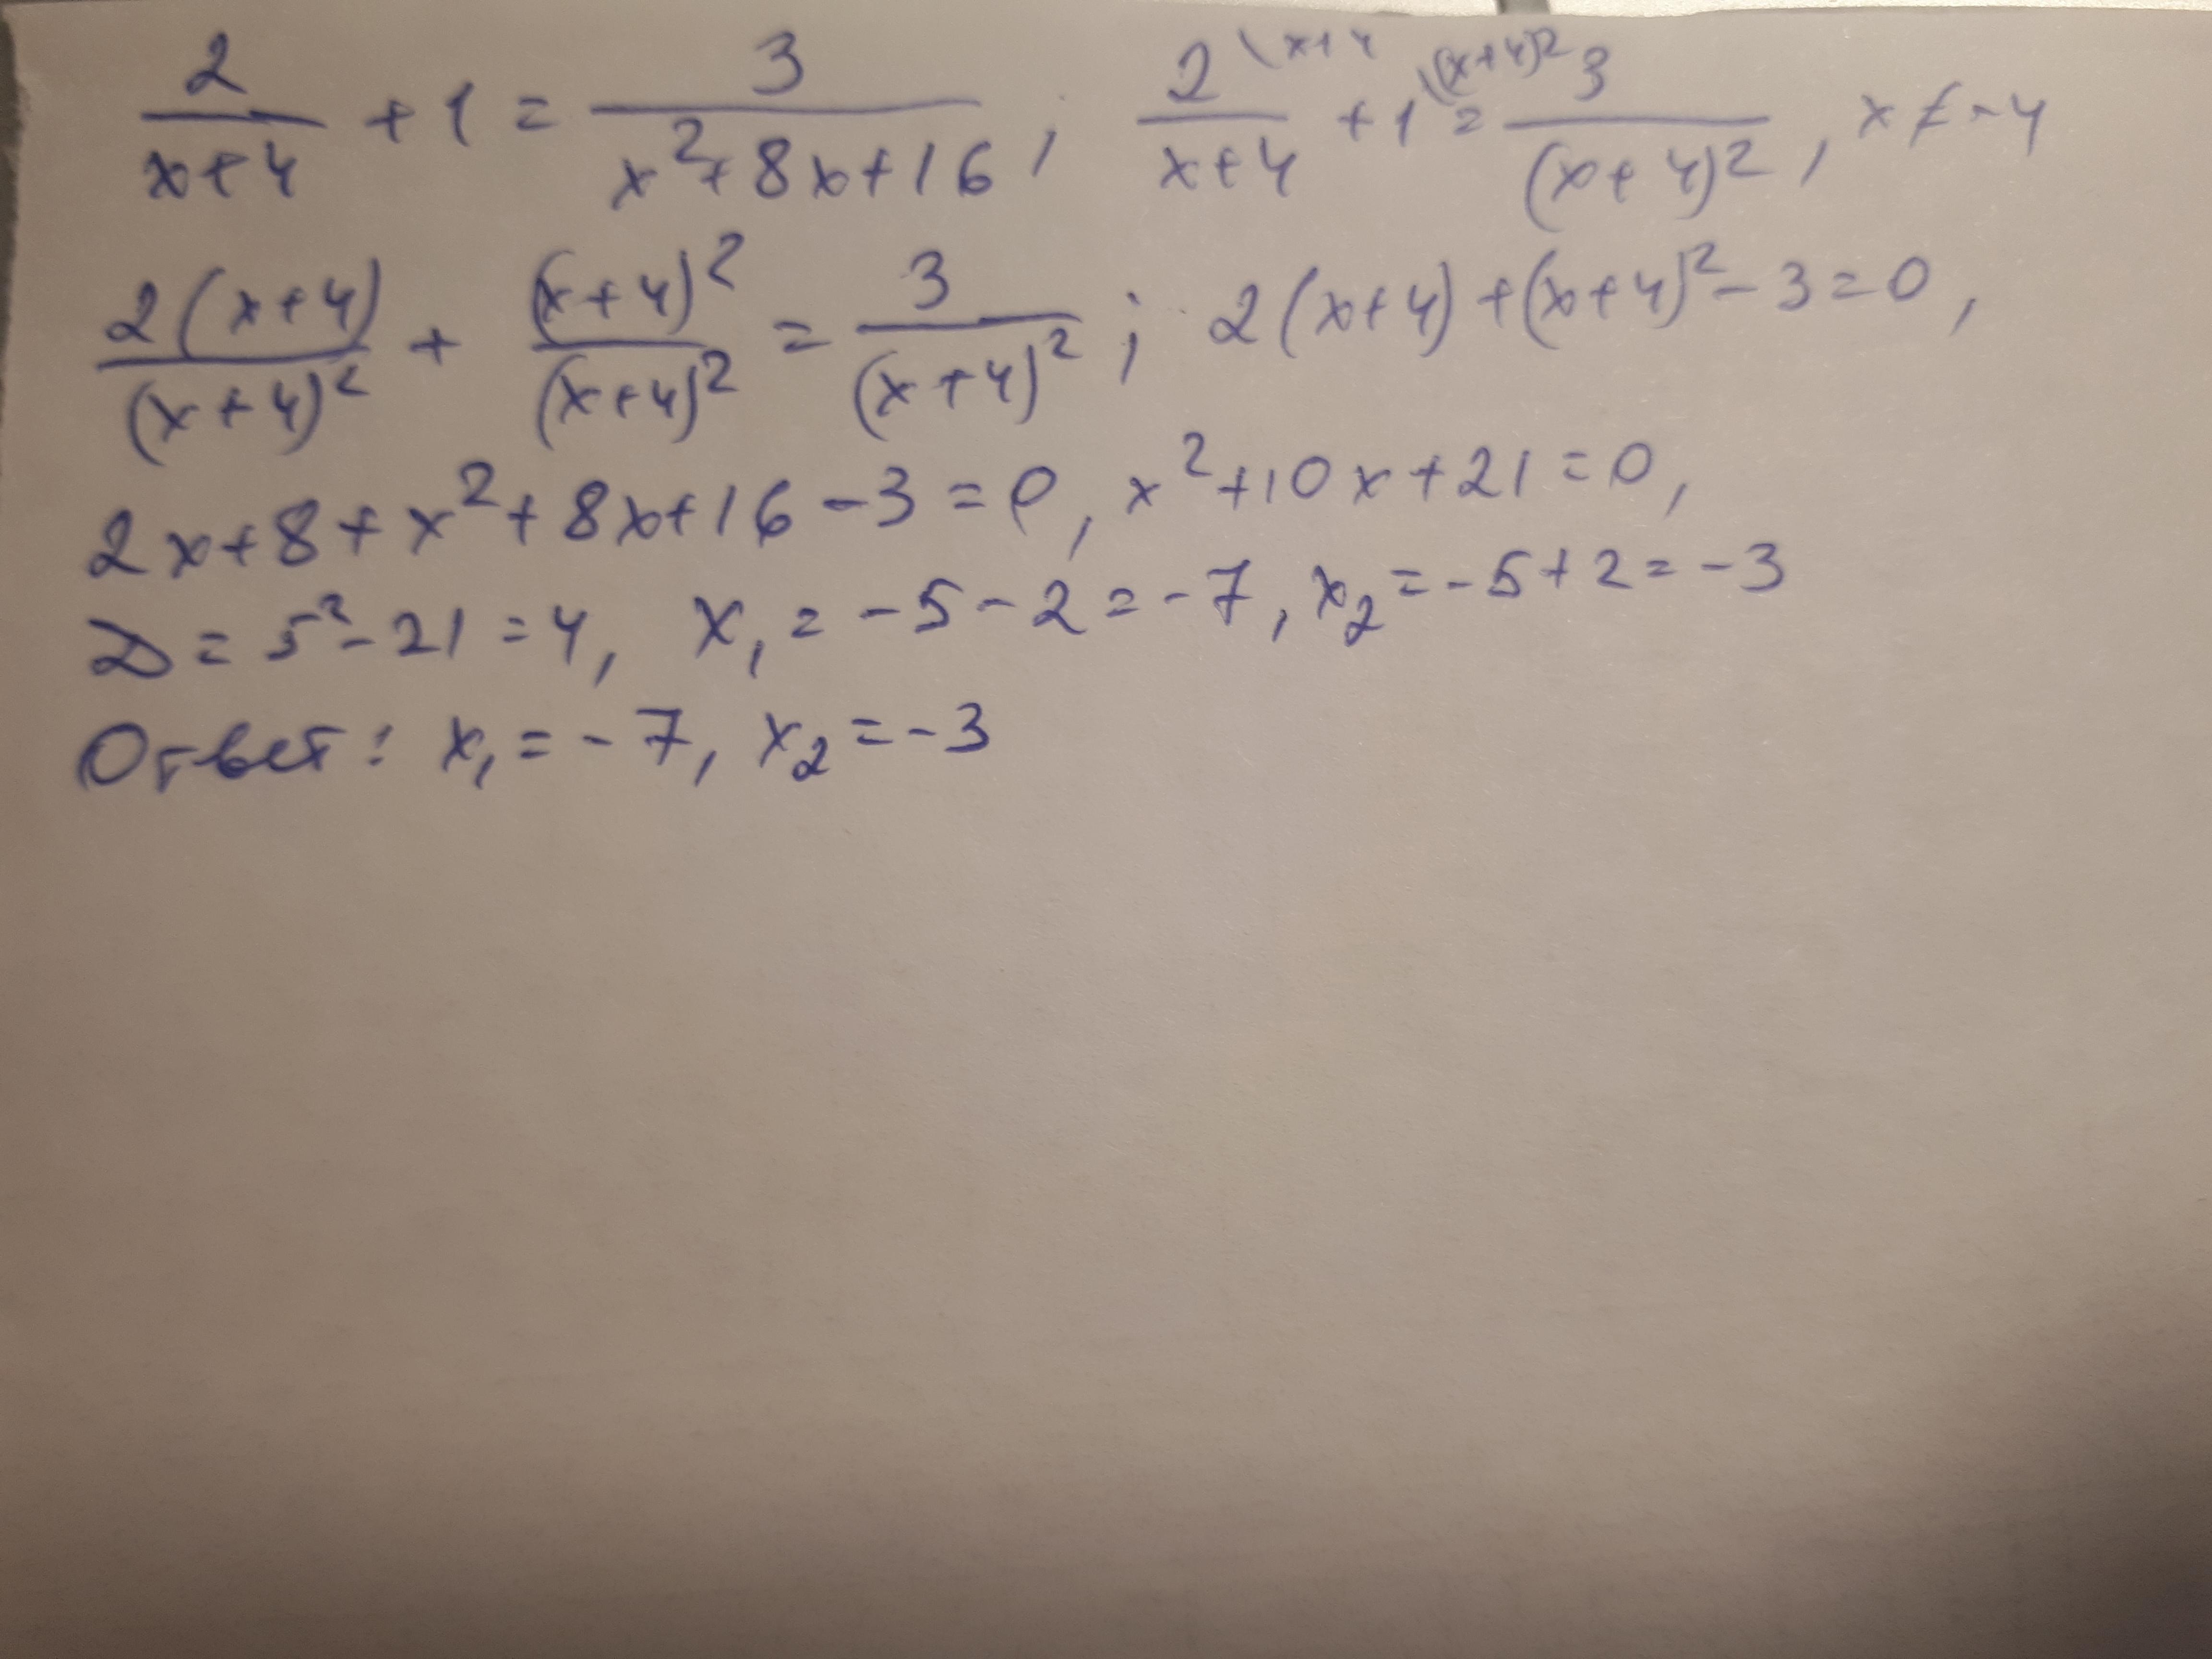 2/(x+4) + 1 = 3/(x²+8x+16); 2\x+4/(x+4) + 1\(x+4)² = 3/(x+4)², x ≠ -4
2(x+4)/(x+4)² + (x+4)²/(x+4)² = 3/(x+4)²; 2(x+4)+(x+4)²-3=0,
2x+8+x²+8x+16-3=0, x²+10x+21=0,
D=5²-21=4, x₁=-5-2=-7, x₂=-5+2=-3
Ответ: x₁=-7, x₂=-3